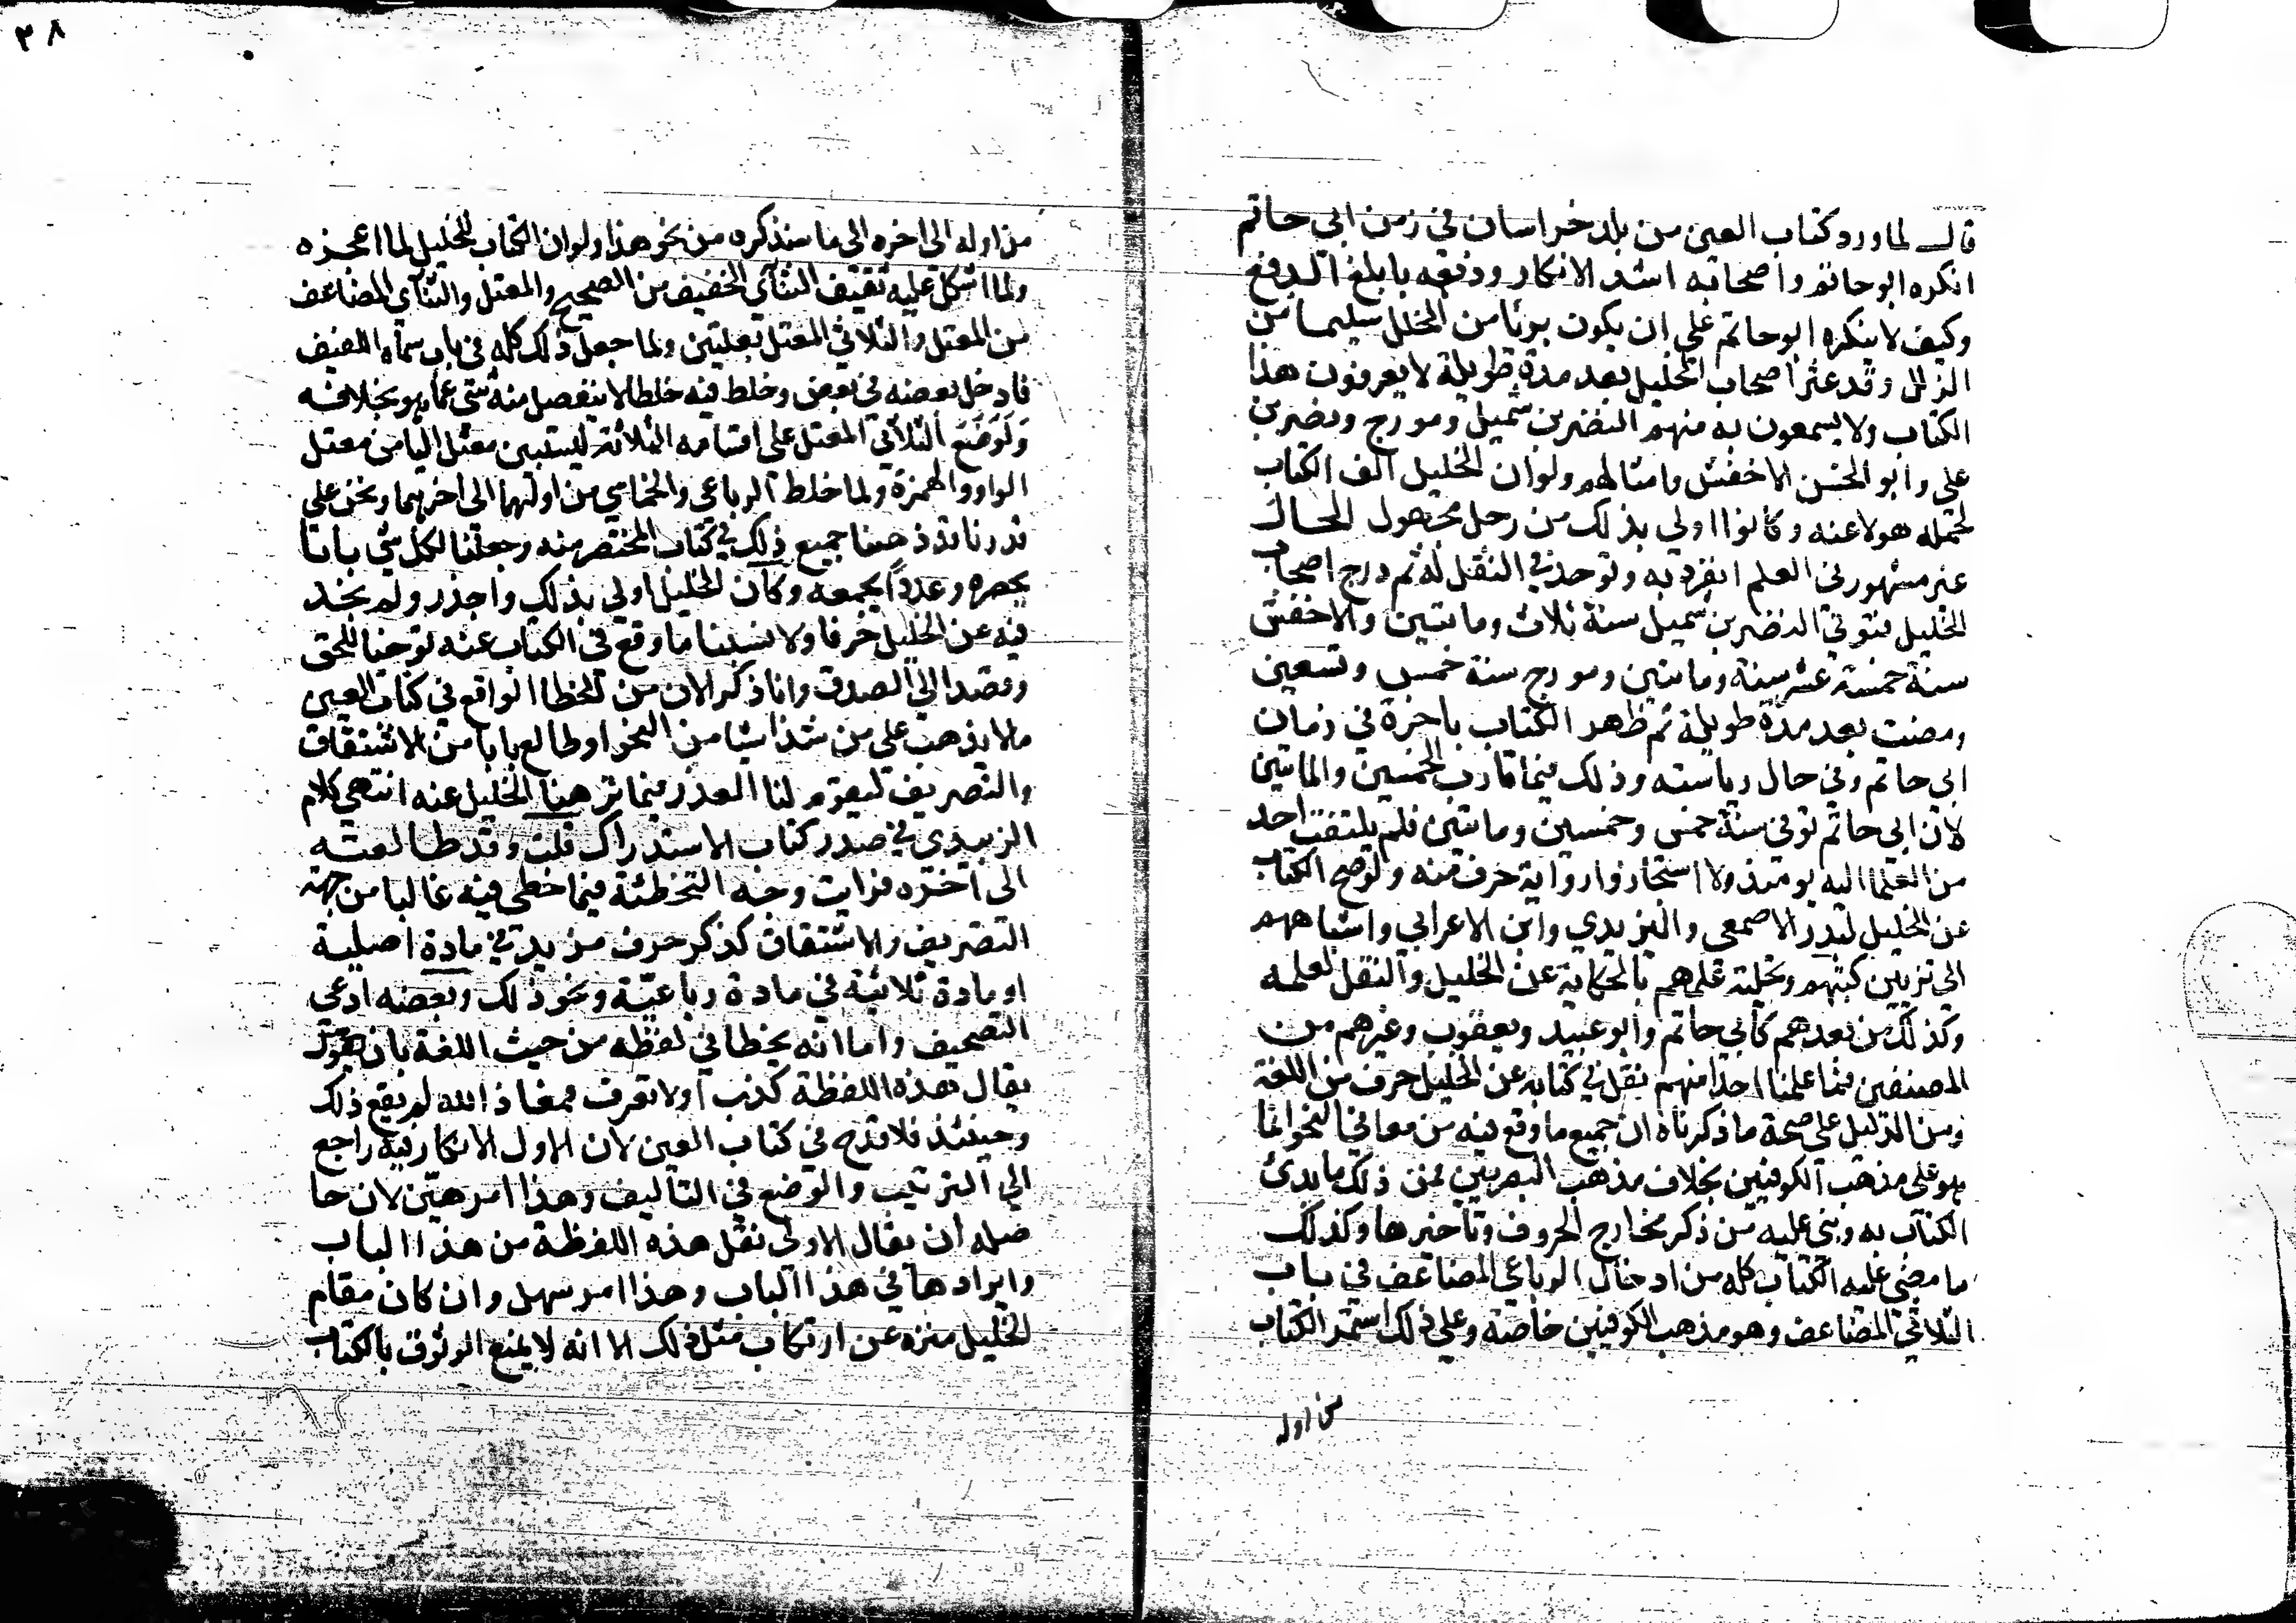 قال لما ورد كتاب العين من بلد خراسان في زمن ابي حاتم
انكره ابو حاتم واصحابه اشد الانكار ودفعه بابلغ الدفع
وكيف لا ينكره ابو حاتم على ان يكون بريا من الخلل سليما من
الزلل وقد عثر اصحاب الخليل بعد مدة طويلة لا يعرفون هذا
الكتاب ولا يسمعون به منهم النضر بن شميل ومورج ونصر بن
علي وابو الحسن الاخفش وامثالهم ولو ان الخليل الف الكتاب
لحمله هولا عنه وكانوا اولى بذلك من رجل مجهول الحال
غير مشهور في العلم انفرد به وتوحد في النقل له ثم درج اصحاب
الخليل فتوفي النضر بن شميل سنة ثلاث ومايتين والاخفش
سنة خمسة عشر سنة ومايتين ومورج سنة خمس وتسعين
ومضت بعد مدة طويلة ثم ظهر الكتاب باخرة في زمان
ابي حاتم وفي حال رياسته وذلك فيما قارب الخمسين والمايتين
لان ابي حاتم توفي سنة خمس وخمسين ومايتين فلم يلتفت احد
من العلما اليه يومئذ ولا استجازوا رواية حرف منه ولو صح الكتاب
عن الخليل لبدر الاصمعي واليزيدي وابن الاعرابي واشباههم
الى تزيين كتبهم وتحلية علمهم بالحكاية عن الخليل والنقل لعلمه
وكذلك من بعدهم كابي حاتم وابو عبيد ويعقوب وغيرهم من
المصنفين فما علمنا احدا منهم نقل في كتابه عن الخليل حرف من اللغة
ومن الدليل على صحة ما ذكرناه ان جميع ما وقع فيه من معاني النحو انما
هو على مذهب الكوفيين بخلاف مذهب البصريين فمن ذلك ما بدئ
الكتاب به وبني عليه من ذكر مخارج الحروف وتاخيرها وكذلك
ما مضى عليه الكتاب كله من ادخال الرباعي المضاعف في باب
الثلاثي المضاعف وهو مذهب الكوفيين خاصة وعلى ذلك استمر الكتاب
من اوله
٣٨
من اوله الى اخره الى ما سنذكره من نحو هذا ولو ان الكتاب للخليل لما اعجزه
ولما اشكل عليه تثقيف الثنآي الخفيف من الصحيح والمعتل والثنآي المضاعف
من المعتل والثلاثي المعتل بعلتين ولما جعل ذلك كله في باب سماه اللفيف
فادخل بعضه في بعض وخلط فيه خلطا لا ينفصل منه شي عما هو بخلافه
وَلَوَضَعَ الثلاثي المعتل على اقسامه الثلاثة ليستبين معتل اليا من معتل
الواو والهمزة ولما خلط الرباعي والخماسي من اولهما الى اخرهما ونحن على
قدرنا قد هذبنا جميع ذلك في كتاب المختصر منه وجعلنا لكل شي بابا
يحصره وعدداً يجمعه وكان الخليل اولى بذلك واجدر ولم نجد
فيه عن الخليل حرفا ولا نسبنا ما وقع في الكتاب عنه توخيا للحق
وقصدا الى الصدق وانا ذكر الان من الخطا الواقع في كتاب العين
مالا يذهب على من شذا شيا من النحو او طالع بابا من الاشتقاق
والتصريف ليقوم لنا العذر فيما نزهنا الخليل عنه انتهى كلام
الزبيدي في صدر كتاب الاستدراك قلت وقد طالعته
الى اخره فرايت وجه التخطئة فيما خطى فيه غالبا من جهة
التصريف والاشتقاق كذكر حرف مزيد في مادة اصلية
او مادة ثلاثية في مادة رباعية ونحو ذلك وبعضه ادعى
التصحيف واما انه يخطا في لفظه من حيث اللغة بان يقول
يقال هذه اللفظة كذب او لا تعرف فمعاذ الله لم يقع ذلك
وحينئذ فلا قدح في كتاب العين لان الاول الانكار فيه راجع
الى الترتيب والوضع في التاليف وهذا امر هيّن لان حا
صله ان يقال الاولى نقل هذه اللفظة من هذا الباب
وايرادها في هذا الباب وهذا امر سهل وان كان مقام
الخليل منزه عن ارتكاب مثل ذلك الا انه لا يمنع الوثوق بالكتاب